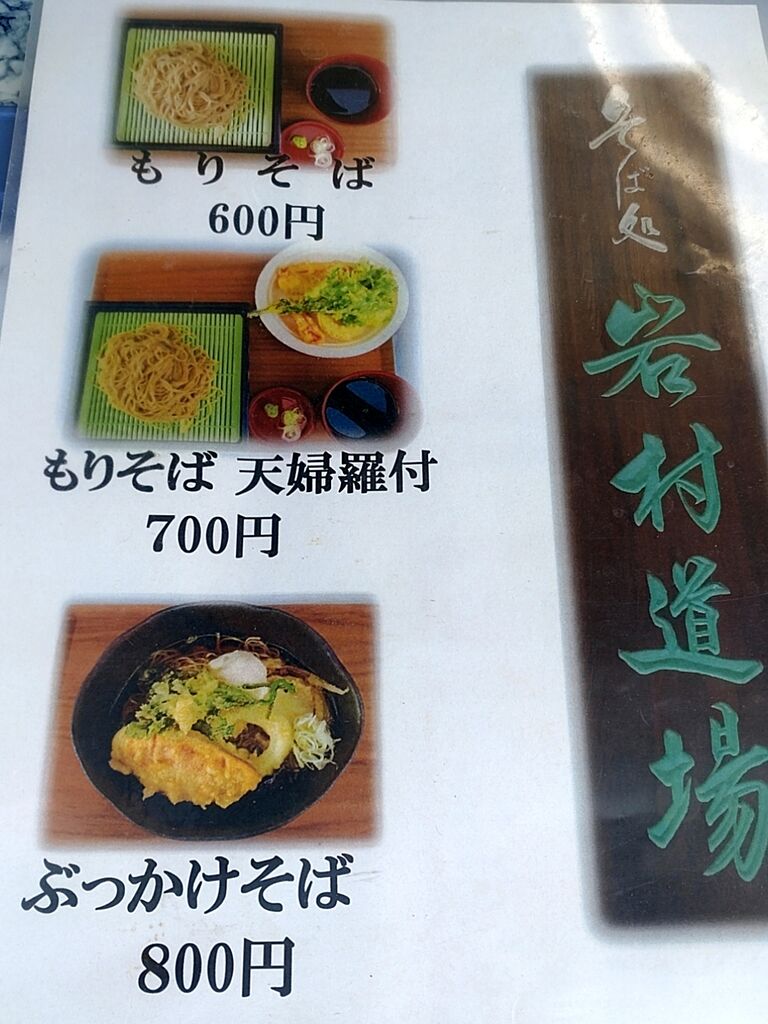 もりそば
600円
もりそば 天婦羅付
700円
ぶっかけそば
800円
そば処
岩村道場